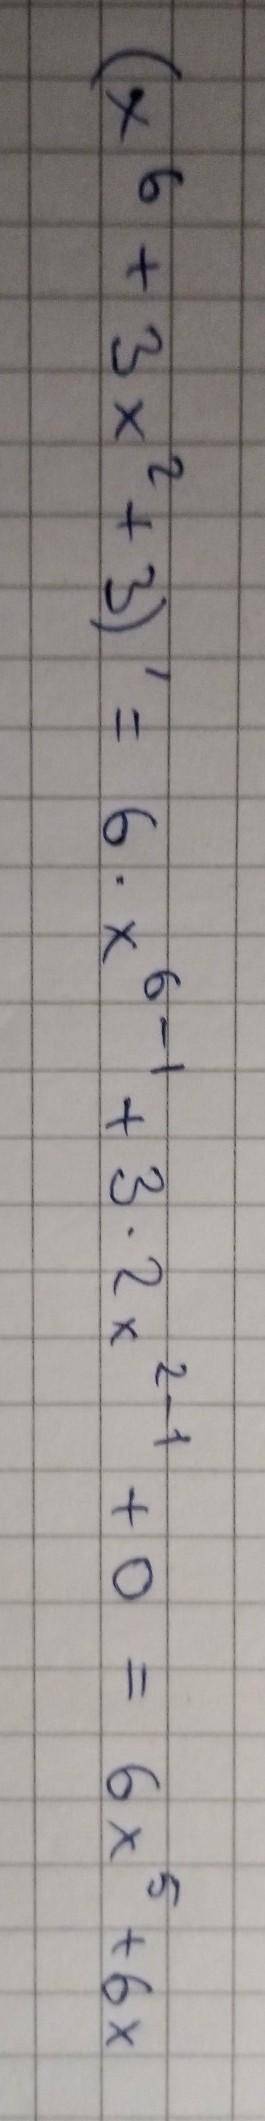 (x⁶ + 3x² + 3)' = 6 · x⁶⁻¹ + 3 · 2x²⁻¹ + 0 = 6x⁵ + 6x